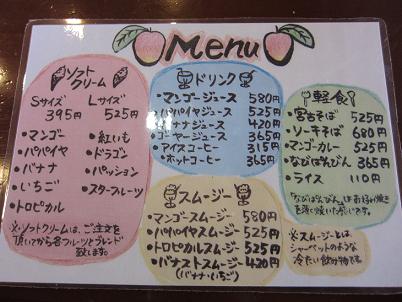 Menu
ソフトクリーム
Sサイズ 395円
Lサイズ 525円
・マンゴー
・パパイヤ
・バナナ
・いちご
・トロピカル
・紅いも
・ドラゴン
・パッション
・スターフルーツ
※ソフトクリームは、ご注文を
頂いてから各フルーツとブレンド
致します。
ドリンク
・マンゴージュース 580円
・パパイヤジュース 525円
・バナナジュース 420円
・ゴーヤージュース 365円
・アイスコーヒー 315円
・ホットコーヒー 365円
スムージー
・マンゴースムージー 580円
・パパイヤスムージー 525円
・トロピカルスムージー 525円
・バナストスムージー 420円
(バナナ・いちご)
軽食
・宮古そば 525円
・ソーキそば 680円
・マンゴカレー 525円
・なびぱんびん 365円
・ライス 110円
※スムージーとは
シャーベットのような
冷たい飲み物です。